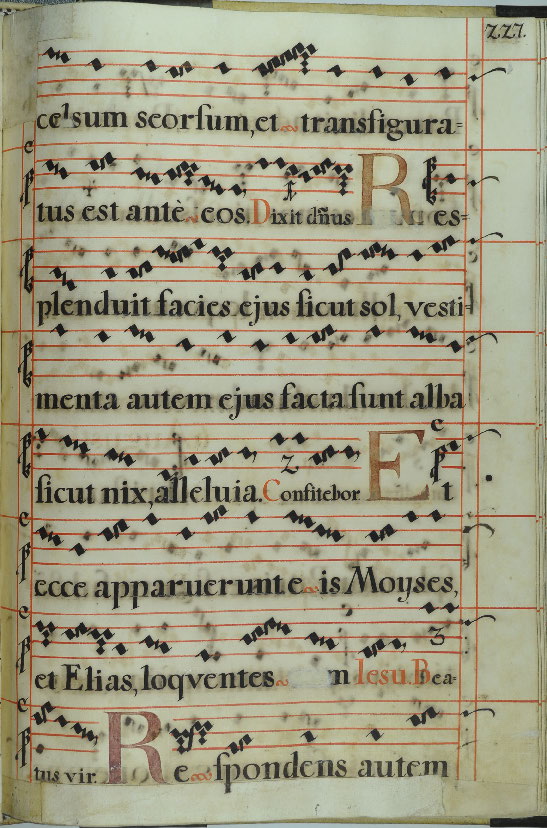 227.
celsum seorsum, et transfigura=
tus est antè eos. Dixit dñus Res=
plenduit facies ejus sicut sol, vesti-
menta autem ejus facta sunt alba
sicut nix, alleluia. Confitebor Et
2
ecce apparuerunt eis Moyses,
et Elias, loqventes m Iesu. Bea-
3
tus vir. Respondens autem